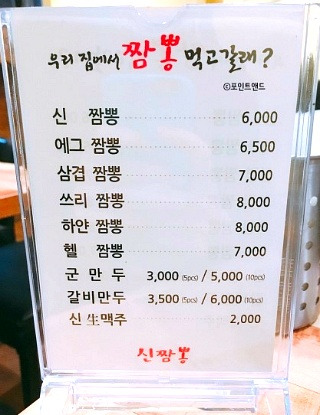 우리 집에서 짬뽕 먹고갈래?
©포인트앤드
신 짬뽕 6,000
에그 짬뽕 6,500
삼겹 짬뽕 7,000
쓰리 짬뽕 8,000
하얀 짬뽕 8,000
헬 짬뽕 7,000
군만두 3,000 (5pcs) / 5,000 (10pcs)
갈비만두 3,500 (5pcs) / 6,000 (10pcs)
신 生맥주 2,000
신짬뽕